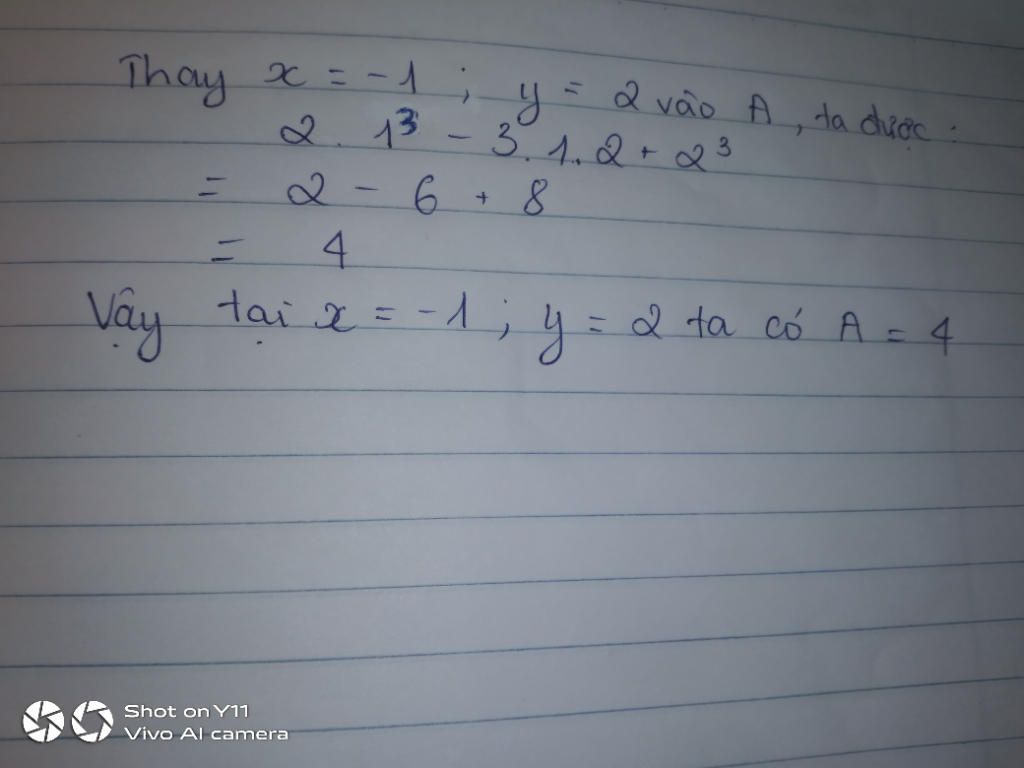 Thay x = -1 ; y = 2 vào A, ta được:
2. 1³ - 3.1.2 + 2³
= 2 - 6 + 8
= 4
Vậy tại x = -1 ; y = 2 ta có A = 4
Shot on Y11
Vivo AI camera